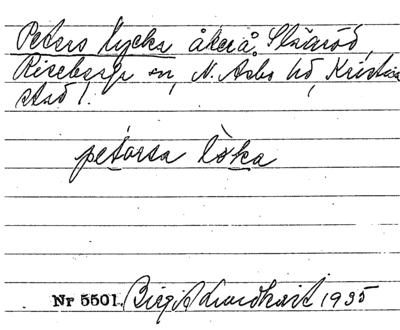 Peters lycka åker å Slättaröd,
Riseberga sn, N. Åsbo hd, Kristian
stad l.
petarsa lỳka
Nr 5501. Birgit Lundkvist 1935